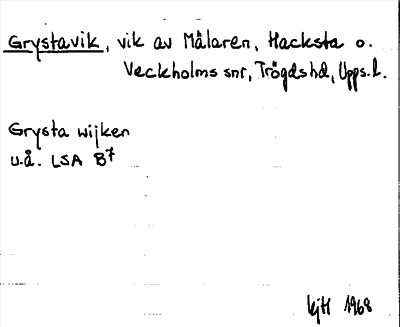 Grystavik, vik av Mälaren, Hacksta o.
Veckholms snr, Trögdshd, Upps. l.
Grysta wijken
u.å. LSA B7
1968